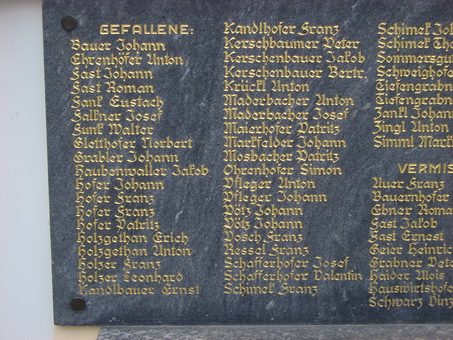 GEFALLENE:
Bauer Johann
Ehrenhöfer Anton
Fast Johann
Fast Roman
Fank Eustach
Falkner Josef
Funk Walter
Gletthofer Norbert
Grabler Johann
Haubenwaller Jakob
Hofer Johann
Hofer Franz
Hofer Franz
Hofer Patritz
Holzgethan Erich
Holzgethan Anton
Holzer Franz
Holzer Leonhard
Kandlbauer Ernst
Kandlhofer Franz
Kerschbaumer Peter
Kerschenbauer Jakob
Kerschenbauer Bertr.
Krückl Anton
Maderbacher Anton
Maderbacher Josef
Maierhofer Patritz
Markfelder Johann
Mosbacher Patritz
Ohrenhofer Simon
Pfleger Anton
Pfleger Johann
Pötz Johann
Pötz Johann
Posch Franz
Ressel Franz
Schafferhofer Josef
Schafferhofer Valentin
Schimek Franz
Schimek Joh
Schimek The
Sommersgu
Schweighofe
Tiefengrabn
Tiefengrabn
Zankl Johan
Zingl Anton
Simml Mark
VERMIS
Auer Franz
Bauernhofer
Ebner Roma
Fast Jakob
Fast Ernest
Geier Heinric
Grabner Pete
Haider Alois
Hauswirtshofe
Schwarz Vinz